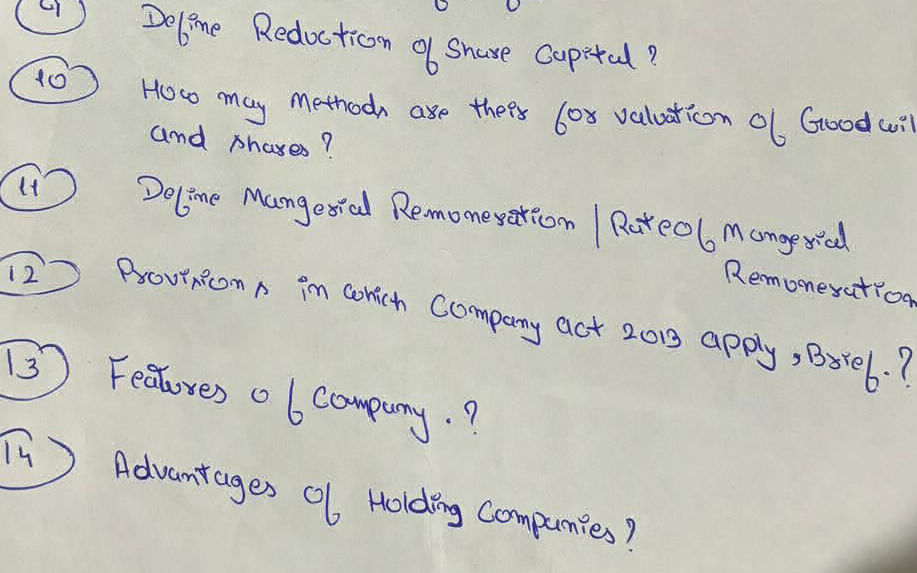 9 Define Reduction of Share Capital ?
10 How may Methods are their for valuation of Goodwil
and shares ?
11 Define Mangerial Remoneration | Rate of Mangerial
Remoneration
12 Provisions in which Company act 2013 apply, Brief. ?
13 Features of Company . ?
14 Advantages of Holding Companies ?